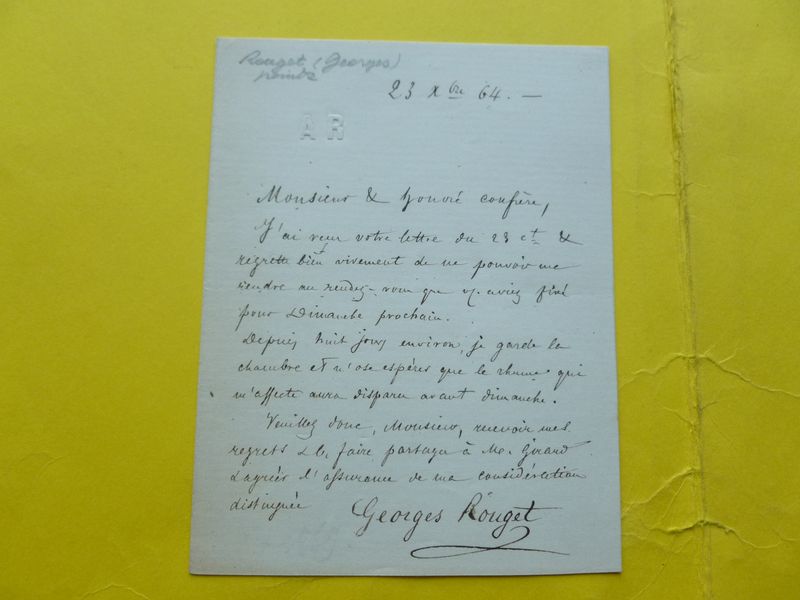 Rouget (Georges)
peintre
23 Xbre 64. —
AR
Monsieur & honoré confrère,
J'ai reçu votre lettre du 23 ct. &
regrette bien vivement de ne pouvoir me
rendre au rendez-vous que v/. aviez fixé
pour Dimanche prochain.
Depuis huit jours environ, je garde la
chambre et n'ose espérer que le rhume qui
m'affecte aura disparu avant dimanche.
Veuillez donc, Monsieur, recevoir mes
regrets & les faire partager à Mr. Girard
& agréer l'assurance de ma considération
distinguée
Georges Rouget